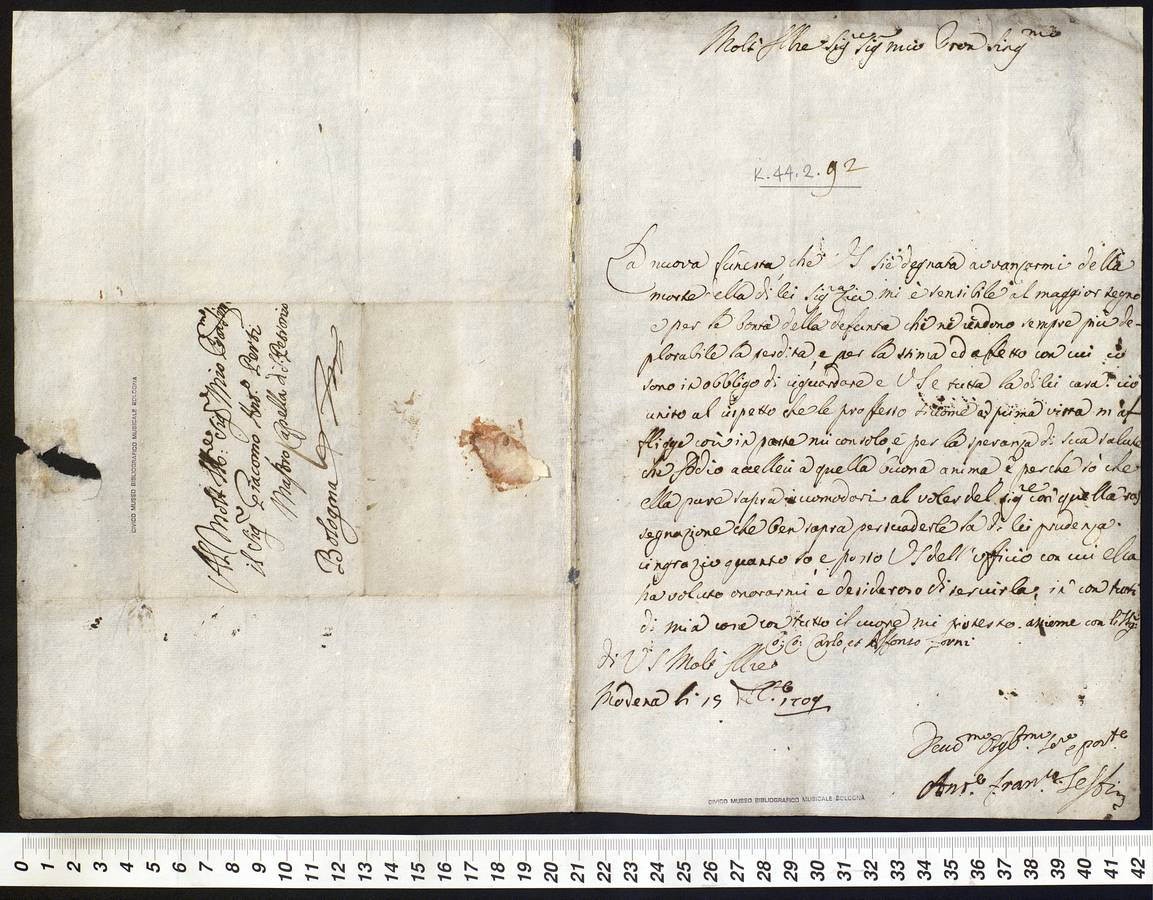 Al Molt Ill:re Sig:r Mio
il Sig:r Giacomo Ant.o Perti
Mastro Capella di S. Petronio
Bologna
CIVICO MUSEO BIBLIOGRAFICO MUSICALE BOLOGNA
Molt Illre Sig:re Sig mio Pron Sing:mo
K.44.2.92
La nuova funesta, che VS si è degnata avvanzarmi della
morte della di lei Sig:ra mi è sensibile al maggior segno
e per la bontà della defunta che ne rendono sempre più de-
plorabile la perdita, e per la stima ed affetto con cui
sono in obbligo di riguardare e VS e tutta la di lei casa.
unito al rispetto che le professo siccome a prima vista m'af
fligge così in parte mi consolo e per la speranza di sua salute
che Iddio a quella buona anima e perche so che
ella pure saprà accomodarsi al voler del Sig:re con quella ras
segnazione che ben saprà persuaderle la di lei prudenza.
ringrazio quanto so e posso VS dell'ufficio con cui ella
ha voluto onorarmi e desideroso di servirla, con tutti
di mia casa con tutto il cuore mi protesto. assieme con li Sig:
Carlo, et Alfonso Forni
di VS Molt Illre
Modena li 15 1709
Devo:mo Obblig:mo
Ant.o Fran.co
CIVICO MUSEO BIBLIOGRAFICO MUSICALE BOLOGNA
0 1 2 3 4 5 6 7 8 9 10 11 12 13 14 15 16 17 18 19 20 21 22 23 24 25 26 27 28 29 30 31 32 33 34 35 36 37 38 39 40 41 42